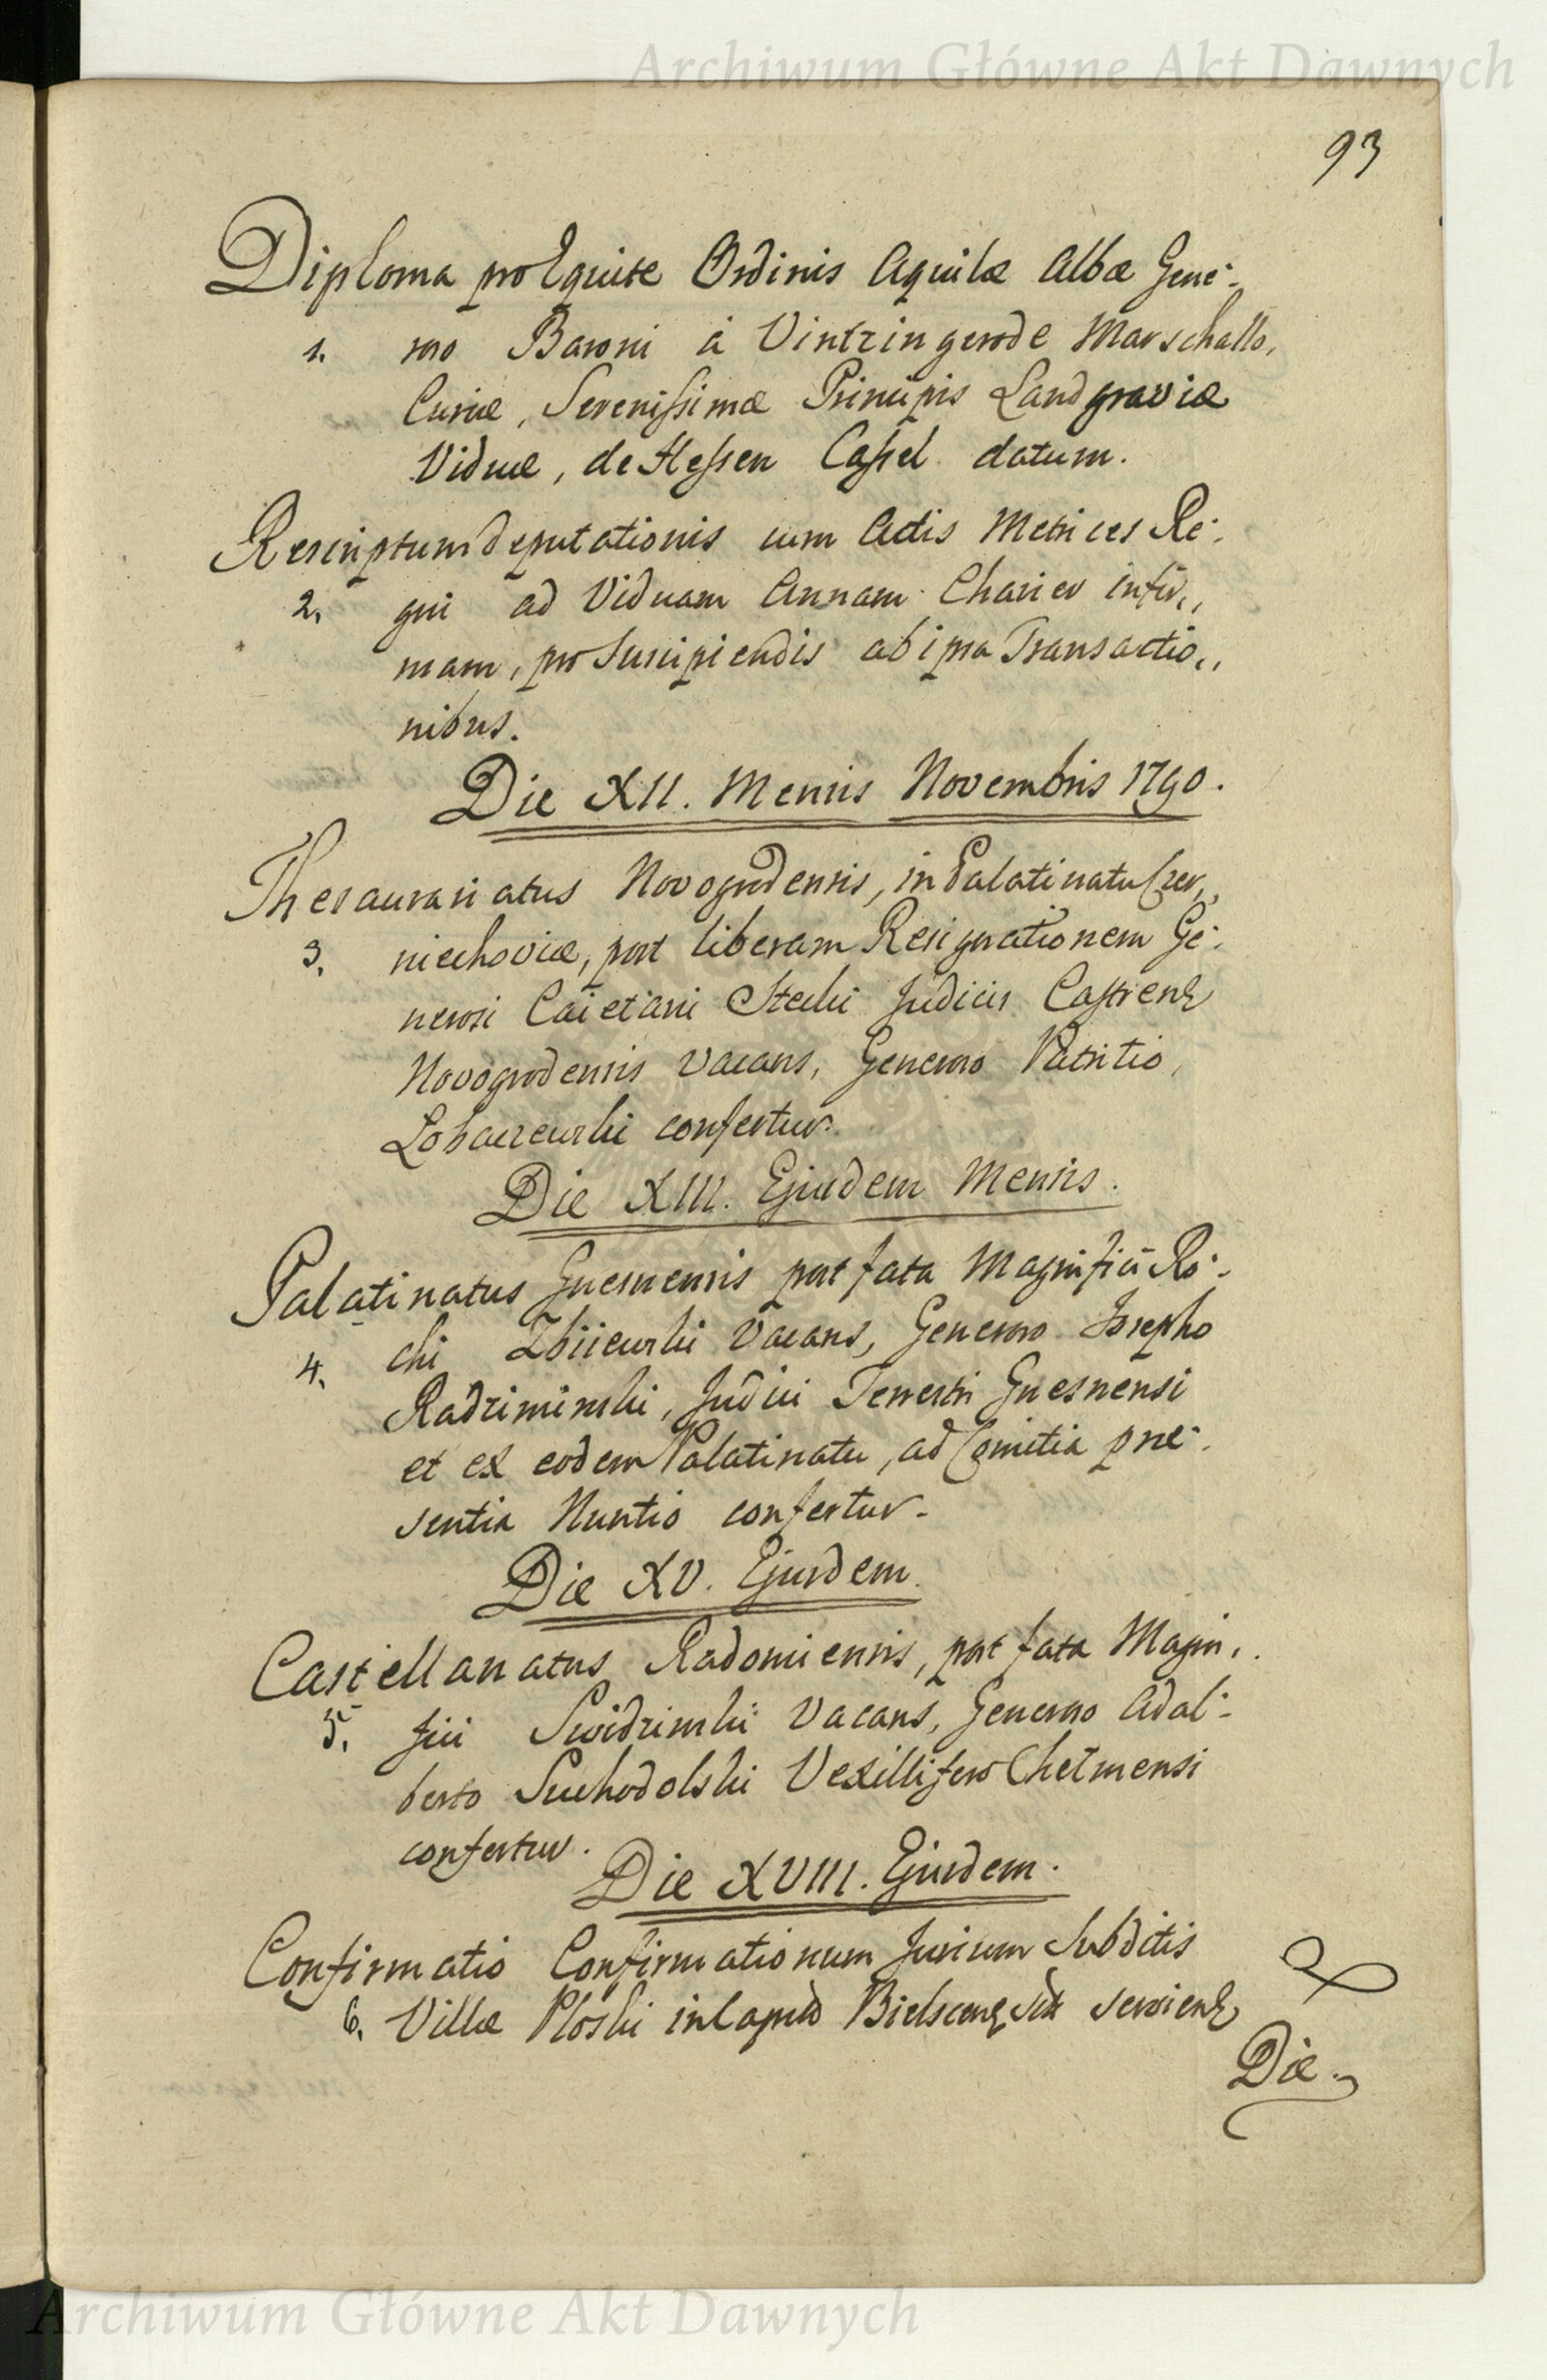 Archiwum Główne Akt Dawnych
93
Diploma pro Equite Ordinis Aquilæ Albæ Gene-
1. roso Baroni à Vintzingerode Marschallo,
Curiæ, Serenissimæ Principis Landgraviæ
Viduæ, de Hessen Cassel datum.
Rescriptum deputationis cum Actis Metrices Re-
2. gni ad Viduam Annam Charier infir,,
mam, pro Suscipiendis ab ipsa Transactio,,
nibus.
Die XII. Mensis Novembris 1790.
Thesaurariatus Novogrodensis, in Palatinatu Czer,,
3. niechoviæ, post liberam Resignationem Ge-
nerosi Caietani Stecki Judicis Castrens
Novogrodensis vacans, Generoso Patritio
confertur.
Die XIII. Ejusdem Mensis.
Palatinatus Gnesnensis post fata Magnifici Ro-
4. chi Zbiiewski vacans, Generoso Josepho
Radziminski, Judici Terrestri Gnesnensi
et ex eodem Palatinatu, ad Comitia præ-
sentia Nuntio confertur.
Die XV. Ejusdem.
Castellanatus Radomiensis, post fata Magni,
5. fici Swidzinski Vacans, Generoso Adal-
berto Suchodolski Vexillifero Chełmensi
confertur.
Die XVIII. Ejusdem.
Confirmatio Confirmationum Jurium Subditis
6. Villæ Ploski in Capneo Bielscens serviens
Die.
Archiwum Główne Akt Dawnych